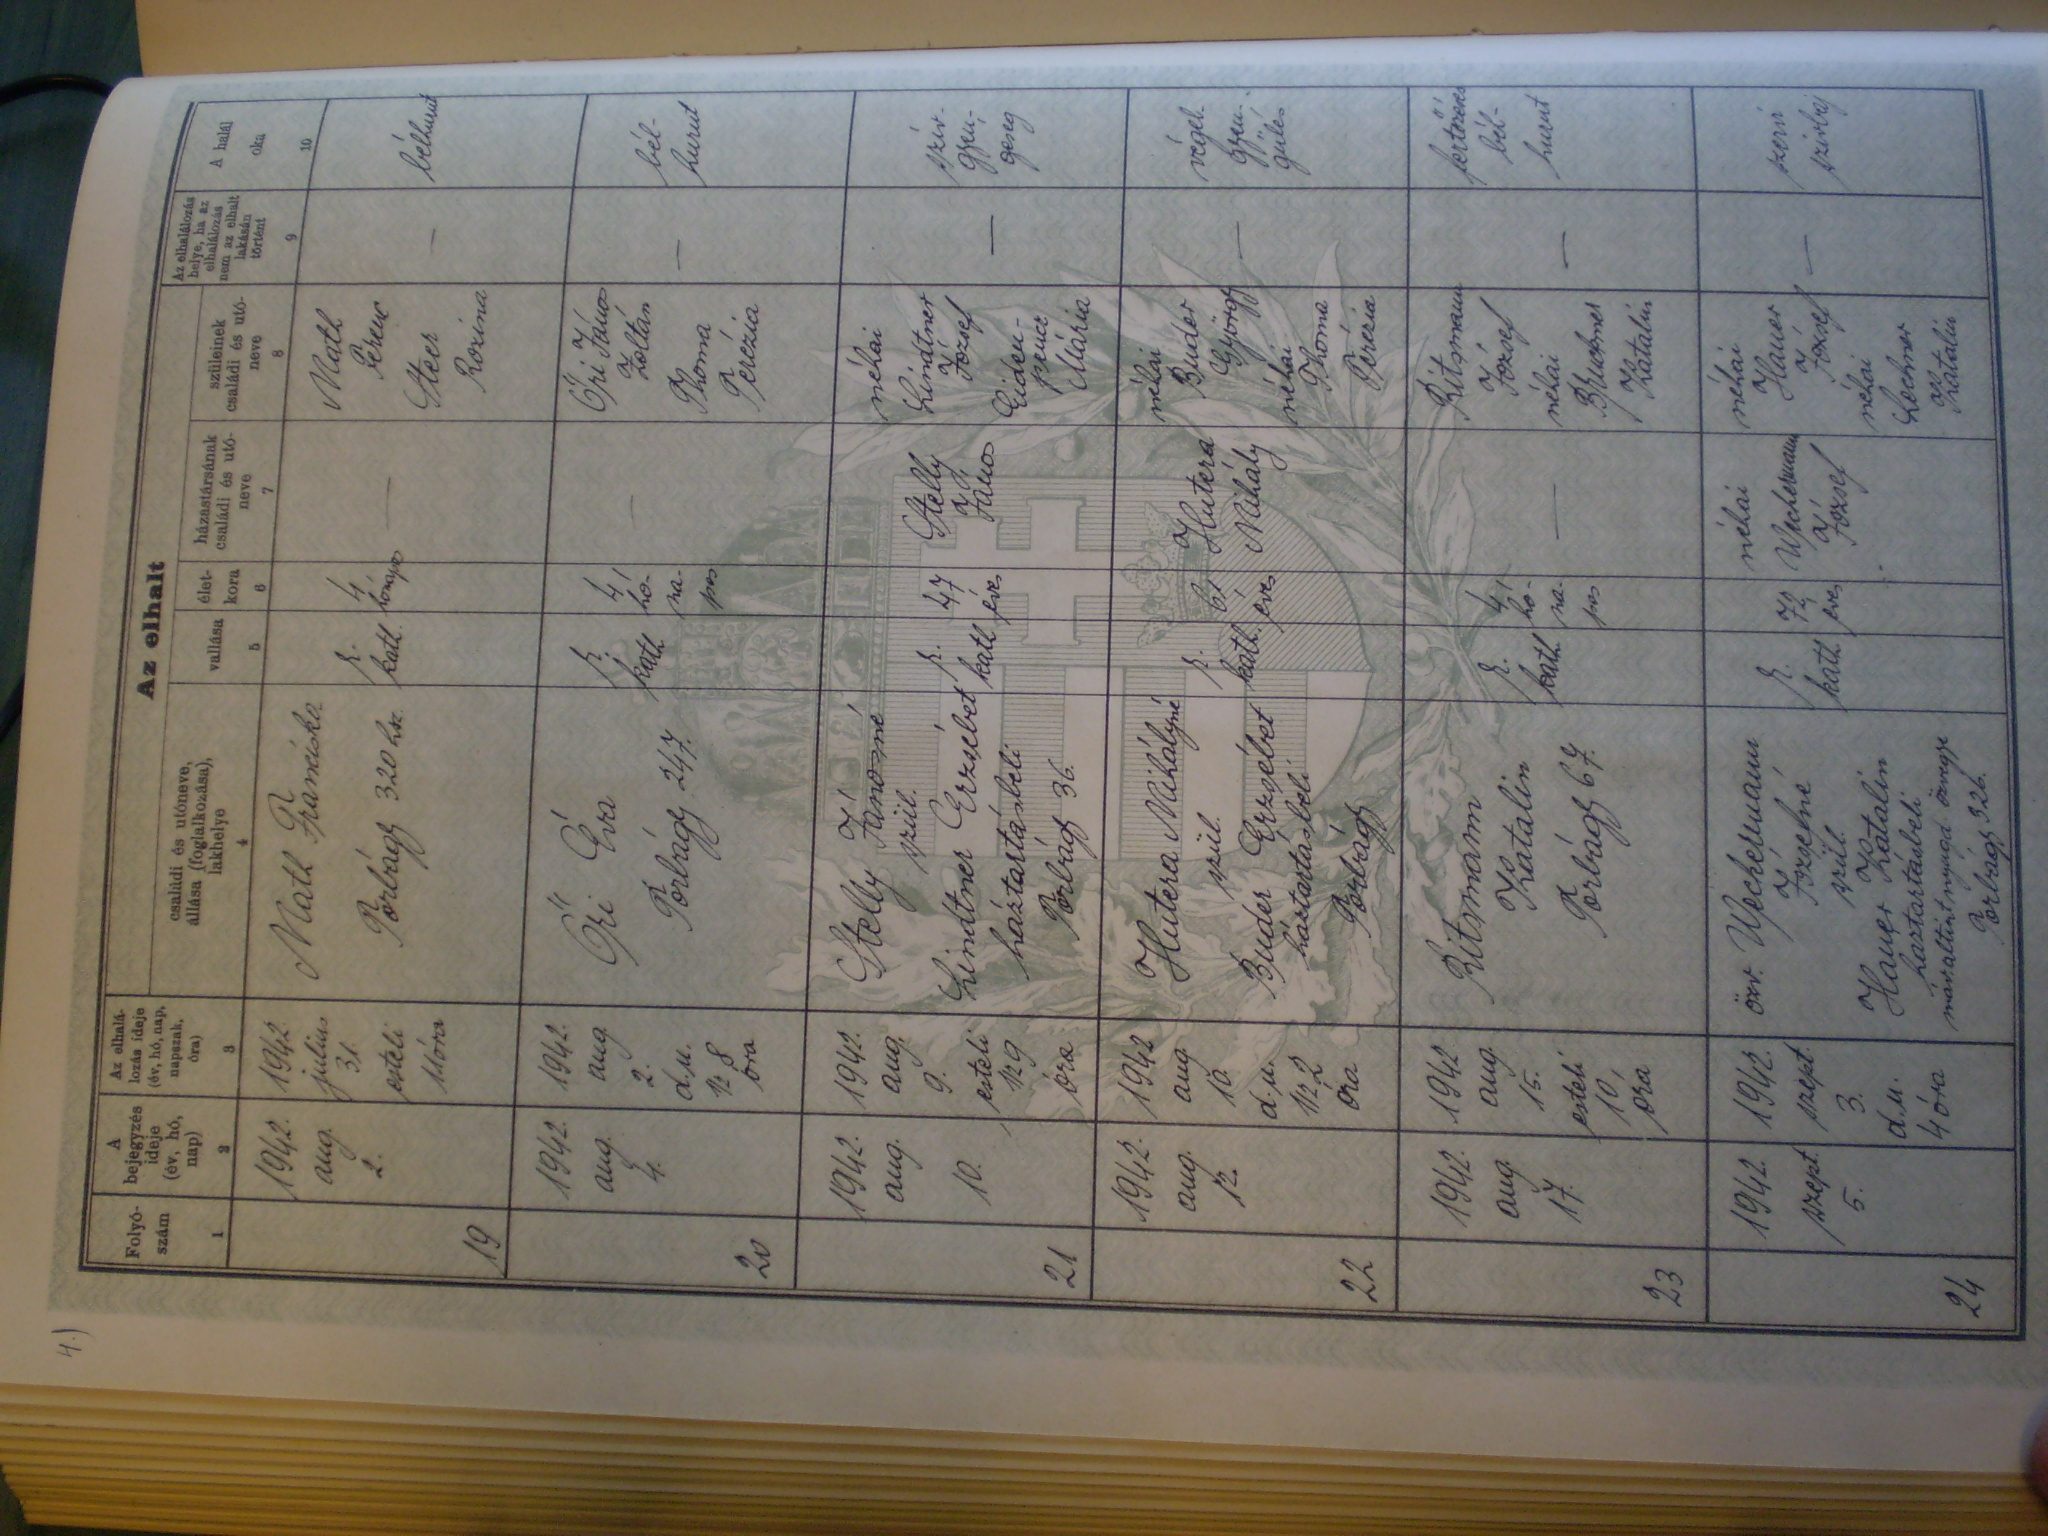 4.)
Az elhalt
Folyó-
szám
A
bejegyzés
ideje
(év, hó,
nap)
Az elhalá-
lozás ideje
(év, hó, nap,
napszak,
óra)
családi és utóneve,
állása (foglalkozása),
lakhelye
vallása
élet-
kora
házastársának
családi és utó-
neve
szüleinek
családi és utó-
neve
Az elhalálozás
helye, ha az
elhalálozás
nem az elhalt
lakásán
történt
A halál
oka
1
2
3
4
5
6
7
8
9
10
19
1942.
aug.
2.
1942.
julius
31.
esteli
11 óra
Math Franciska
Torbágy 320 hsz.
r.
kath.
4
hónapos
—
Math
Ferenc
Steer
Rozina
—
bélhurut
20
1942.
aug.
4.
1942.
aug.
2.
d.u.
1/2 8
óra
Őri Éva
Torbágy 247.
r.
kath
4
hó-
na-
pos
—
Őri János
Zoltán
Thoma
Terézia
—
bél-
hurut
21
1942.
aug.
10.
1942.
aug.
9.
esteli
1/2 9
óra
Stelly Jánosné
szül.
Lindtner Erzsébet
háztartásbeli
Torbágy 36.
r.
kath
47
éves
Stelly
János
néhai
Lindtner
József
Eiden-
pencz
Mária
—
szív-
gyen-
geség
22
1942.
aug.
12.
1942
aug
10.
d.u.
1/2 2
óra
Hutera Mihályné
szül.
Buder Erzsébet
háztartásbeli
Torbágy
r.
kath.
61
éves
Hutera
Mihály
néhai
Buder
György
néhai
Thoma
Terézia
—
végel-
gyen-
gülés
23
1942.
aug
17.
1942
aug.
15.
esteli
10
óra
Ritsmann
Katalin
Torbágy 67.
r.
kath.
4
hó-
na-
pos
—
Ritsmann
József
néhai
Bruckner
Katalin
—
fertőzéses
bél-
hurut
24
1942.
szept.
5.
1942.
szept.
3.
d.u.
4 óra
özv. Weckermann
Józsefné
szül.
Hauer Katalin
háztartásbeli
Torbágy 326.
r.
kath
72
éves
néhai
Weckermann
József
néhai
Hauer
József
néhai
Lechner
Katalin
—
szervi
szívbaj